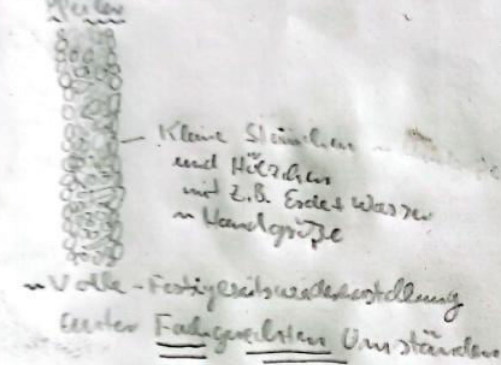 Pfeiler
Kleine Steinchen
und Hölzchen
mit z.B. Erde + Wasser
~ Handgröße
~ Volle-Festigkeitswiederherstellung
unter Fachgerechten Umständen